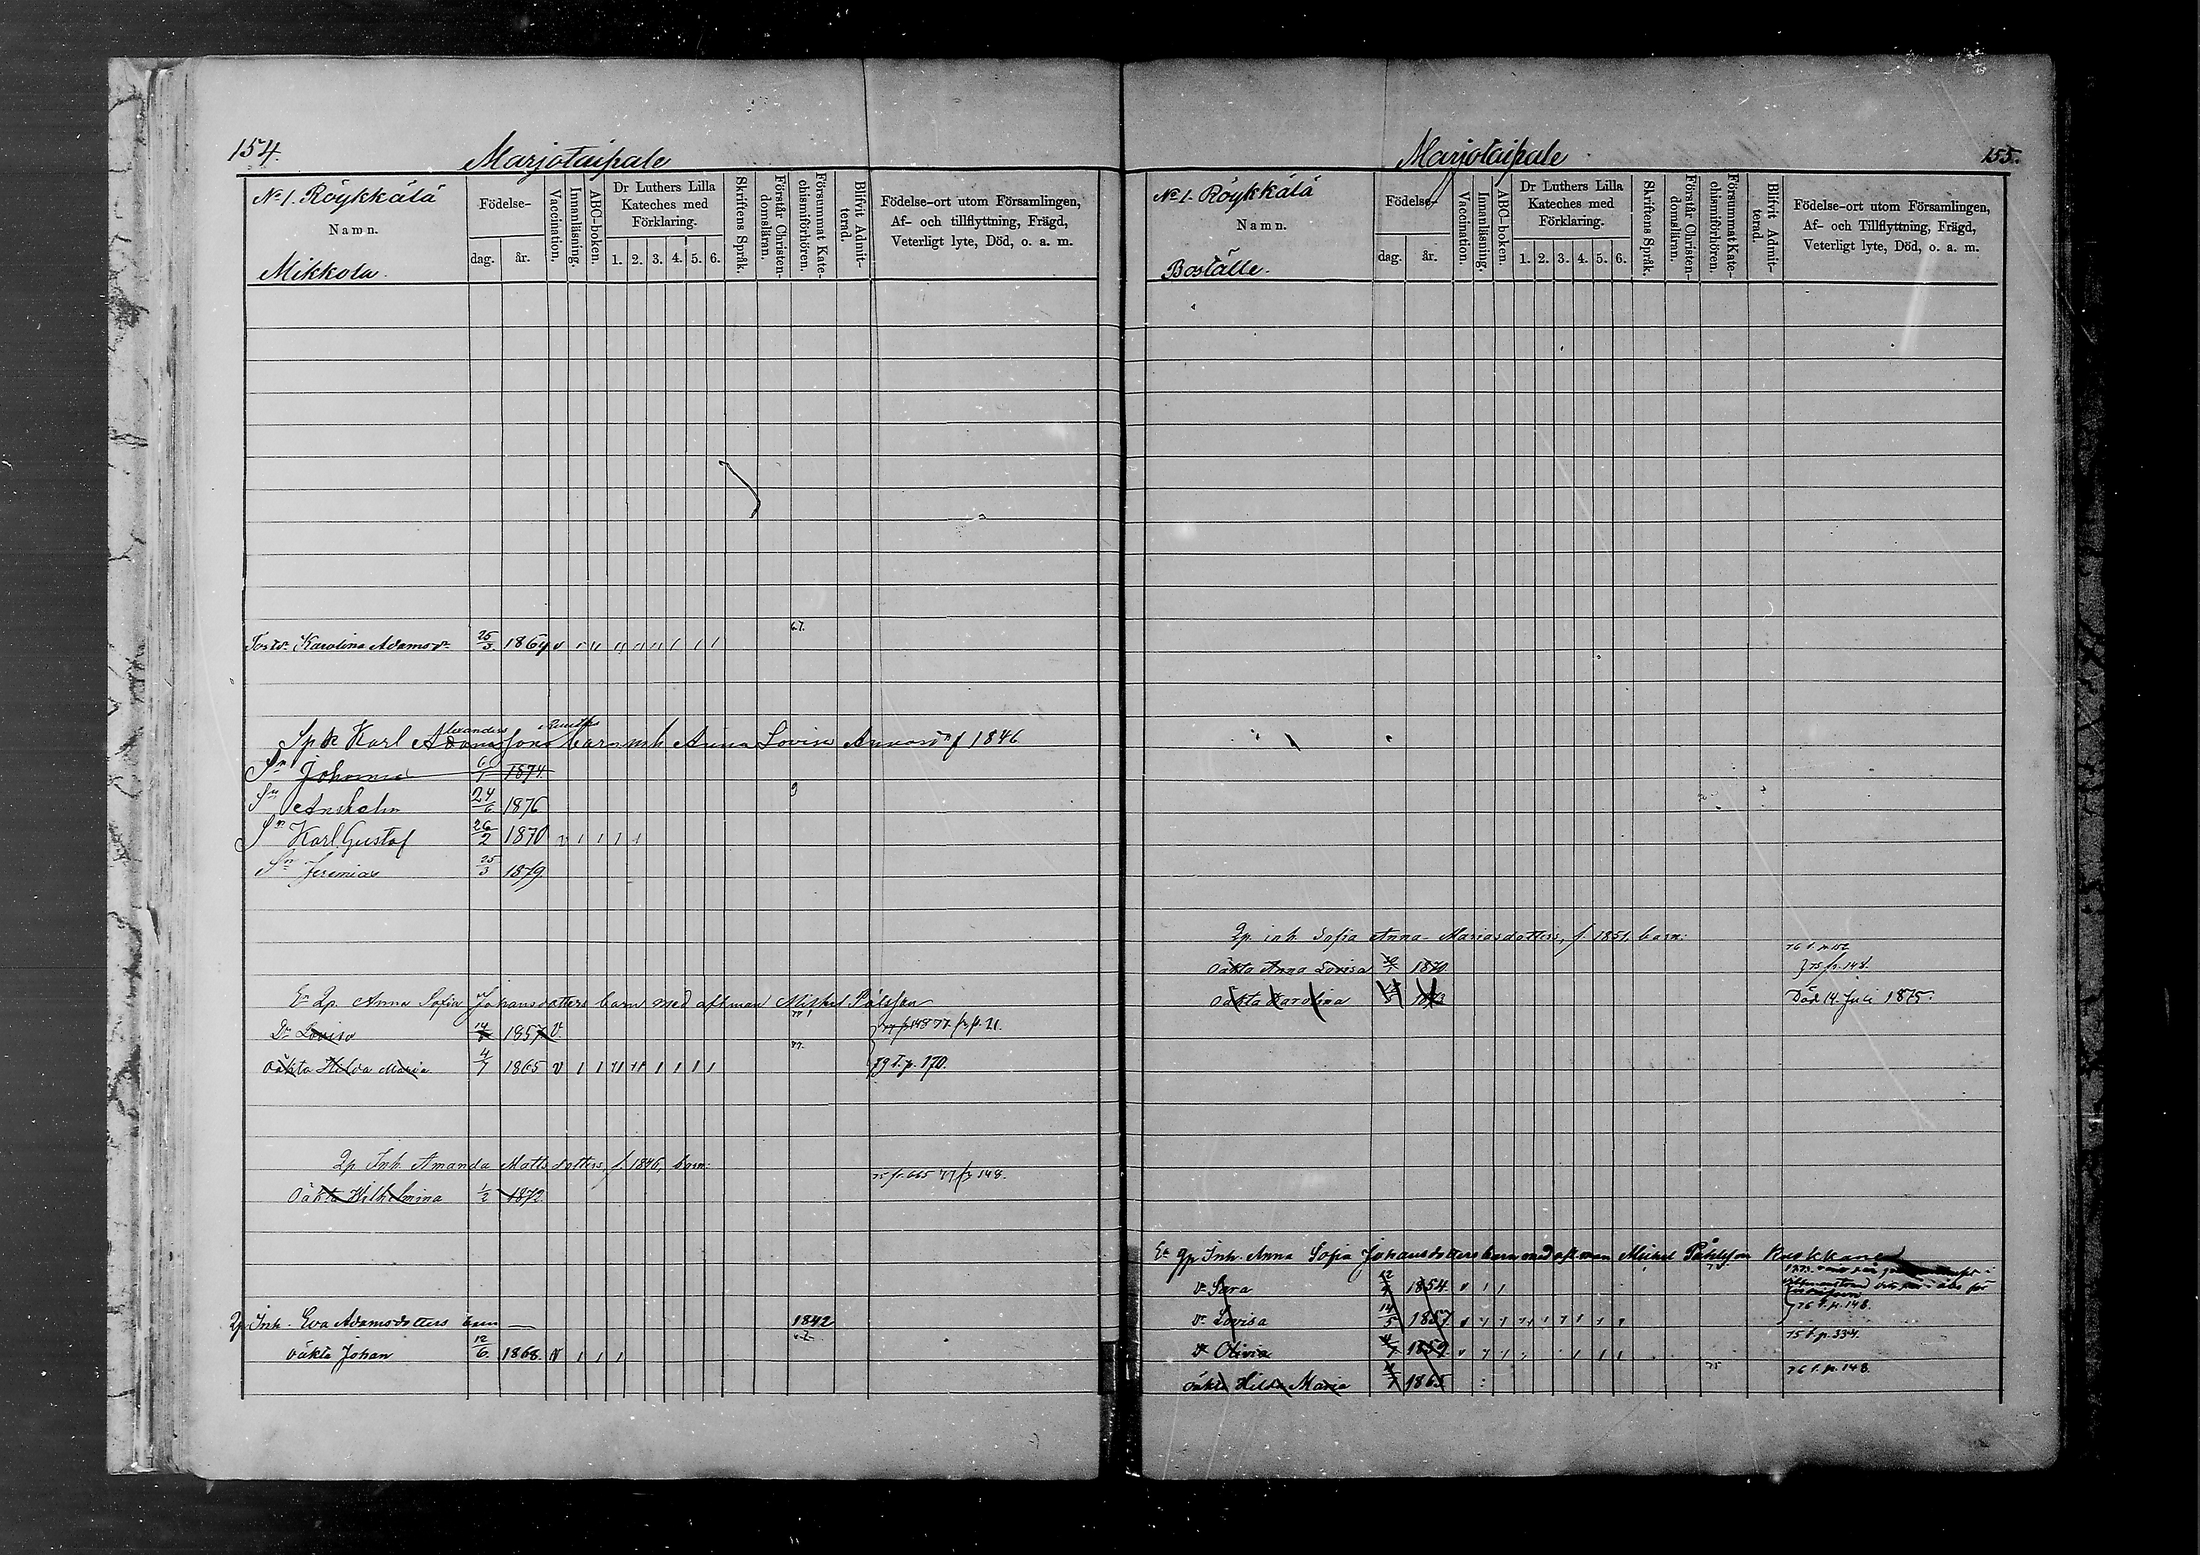 154.
Marjotaipale
No 1. Röykkälä
Namn.
Mikkola.
Födelse-
dag. år.
Vaccination.
Innanläsning.
ABC-boken.
Dr Luthers Lilla
Kateches med
Förklaring.
1. 2. 3. 4. 5. 6.
Skriftens Språk.
Förstår Christen-
domsläran.
Försummat Kate-
chismiförhören.
Blifvit Admit-
terad.
Födelse-ort utom Församlingen,
Af- och tillflyttning, Frägd,
Veterligt lyte, Död, o. a. m.
Karolina Adamsdr 25/3 1864 v
Alexanders
Karl barn mh Anna Lovisa f 1846
Sn Johannes 6/1 1874
Sn Anshelm 24/6 1876
Sn Karl Gustaf 26/2 1870 v
Sn Jeremias 25/3 1879
Er Qp. Anna Sofia Johansdotters barn med aflman Mickel Pålsson
Dr Lovisa 1857 v
oäkta Hilda Maria 4/7 1865 v 79 t. p. 170.
Qp. Inh. Amanda Mattsdotters, f. 1846, barn:
oäkta Wilhelmina 1/2 1872 75 fr. 665 77 fr 148.
Qp Inh. Eva Adamsdotters barn 1842
oäkta Johan 12/6 1868. v
155.
Marjotaipale
No 1. Röykkälä
Namn.
Boställe.
Födelse-
dag. år.
Vaccination.
Innanläsning.
ABC-boken.
Dr Luthers Lilla
Kateches med
Förklaring.
1. 2. 3. 4. 5. 6.
Skriftens Språk.
Förstår Christen-
domsläran.
Försummat Kate-
chismiförhören.
Blifvit Admit-
terad.
Födelse-ort utom Församlingen,
Af- och Tillflyttning, Frägd,
Veterligt lyte, Död, o. a. m.
Qp. inh. Sofia Anna Mariasdotters, f. 1851, barn:
oäkta Anna Lovisa 1870 75 fr. 148.
oäkta Karolina 1873 Död 14. Juli 1875.
Er Qp Inh. Anna Sofia Johansdotters barn med afl. man Mickel Påhlsson
Dr Sara 1854 v
Dr Lovisa 14/5 1857 76 t. p. 148.
Dr Olivia 1859. v 75 t. p. 334.
oäkta Hilda Maria 4/7 1865 75 76 t. p. 148.